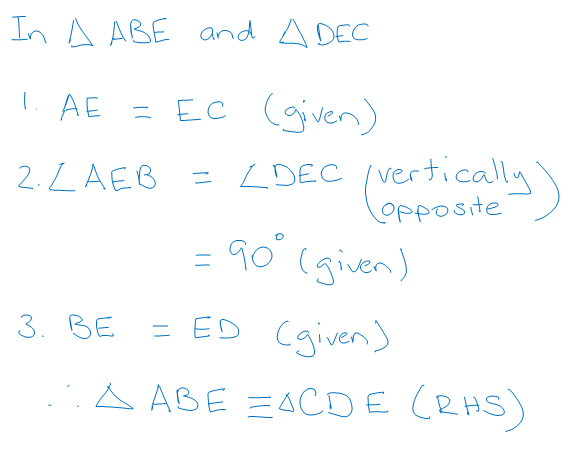 In △ ABE and △ DEC
1. AE = EC (given)
2. ∠AEB = ∠DEC (vertically
opposite)
= 90° (given)
3. BE = ED (given)
∴ △ ABE ≡ △CDE (RHS)